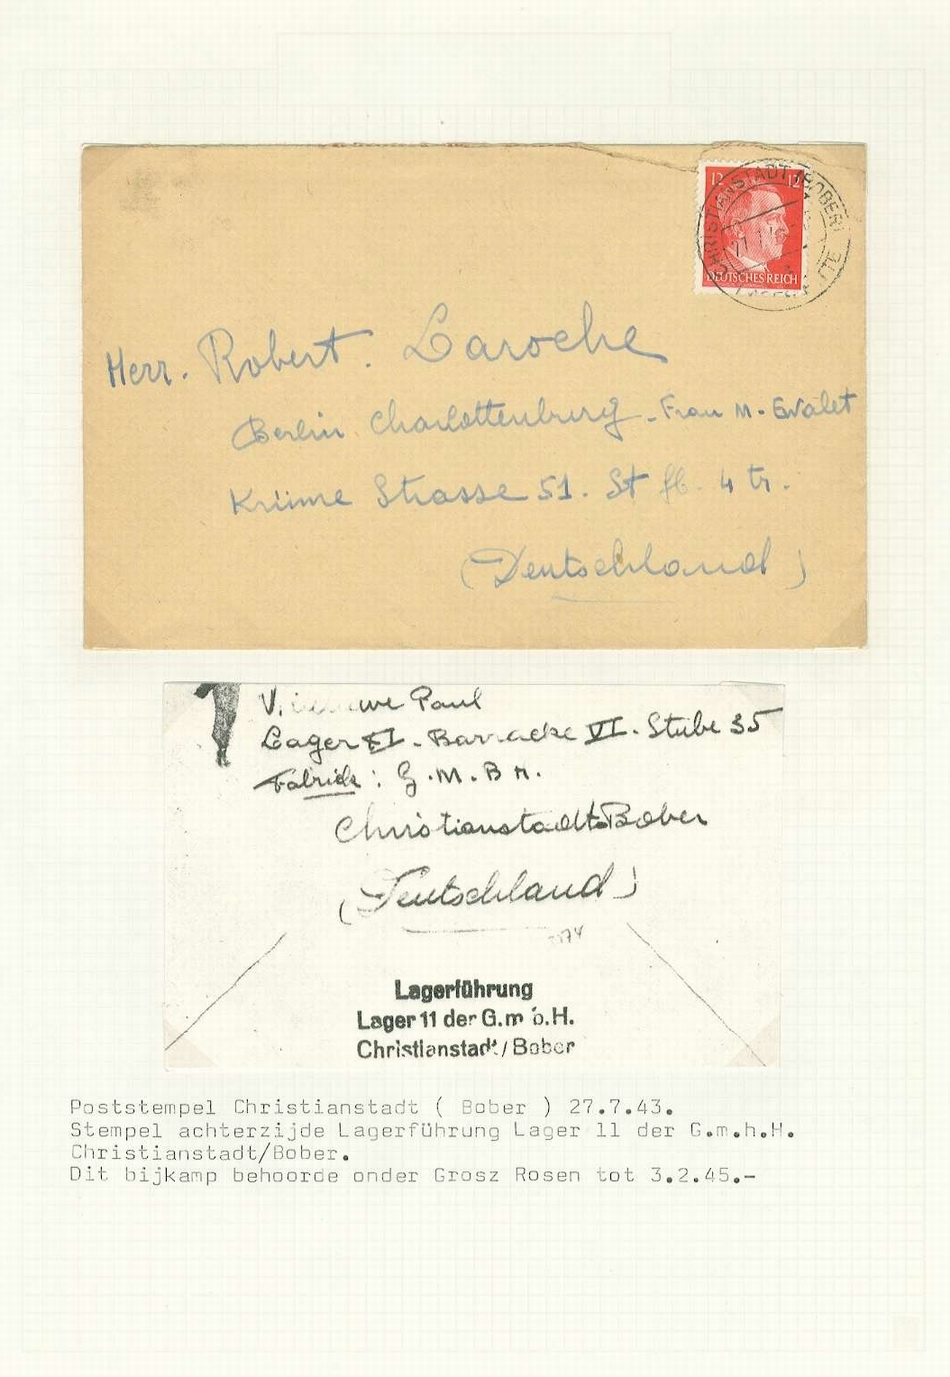 12 12
CHRISTIANSTADT (BOBER)
27.7.
DEUTSCHES REICH
Herr. Robert. Laroche
Berlin Charlottenburg - Frau M. Evalet
Krüme Strasse 51. St fl. 4 tr.
(Deutschland)
Paul
Lager II - Barracke VI. Stube 35
Fabrick: G.M.B H.
Christianstadt Bober
(Deutschland)
Lagerführung
Lager 11 der G.m b.H.
Christianstadt/Bober
Poststempel Christianstadt ( Bober ) 27.7.43.
Stempel achterzijde Lagerführung Lager 11 der G.m.h.H.
Christianstadt/Bober.
Dit bijkamp behoorde onder Grosz Rosen tot 3.2.45.-